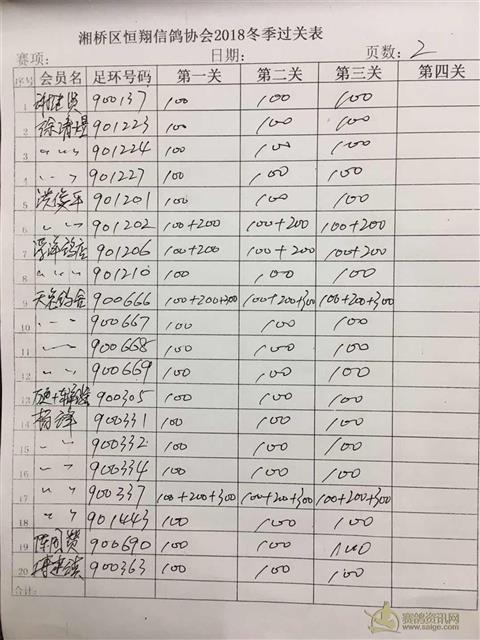 湘桥区恒翔信鸽协会2018冬季过关表
赛项: 日期: 页数: 2
序号 会员名 足环号码 第一关 第二关 第三关 第四关
1 900137 100 100 100
2 901223 100 100 100
3 〃 〃 901224 100 100 100
4 〃 〃 901227 100 100 100
5 洪俊平 901201 100 100 100
6 〃 〃 901202 100+200 100+200 100+200
7 901206 100+200 100+200 100+200
8 〃 〃 901210 100 100 100
9 900666 100+200+300 100+200+300 100+200+300
10 〃 〃 900667 100 100 100
11 〃 〃 900668 100 100 100
12 〃 〃 900669 100 100 100
13 900305 100 100 100
14 900331 100 100 100
15 〃 〃 900332 100 100 100
16 〃 〃 900334 100 100 100
17 〃 〃 900337 100+200+300 100+200+300 100+200+300
18 〃 〃 901443 100 100 100
19 900690 100 100 100
20 900363 100 100 100
合计:
赛鸽资讯网
www.saige.com